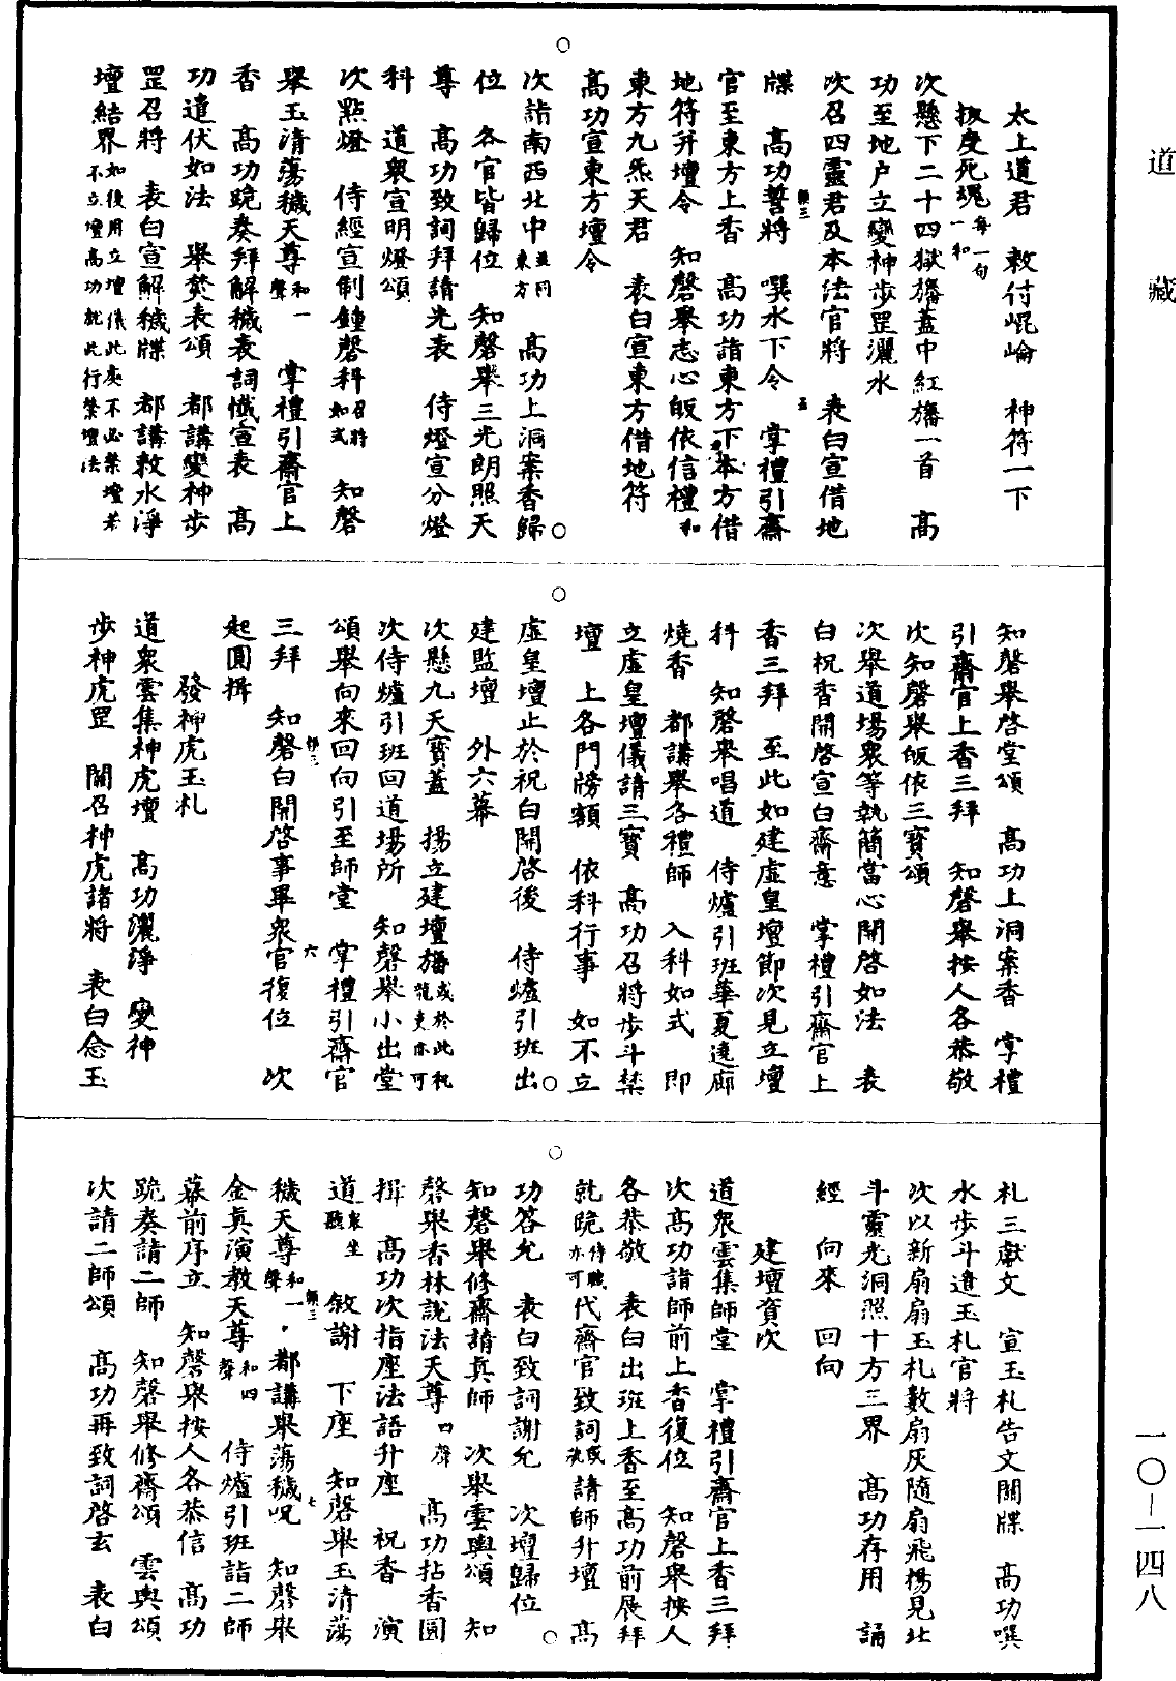 道藏
太上道君　敕付崐崘　神符一下
扳度死魂每一句一和
次懸下二十四獄旛蓋中紅旛一首　高
功至地户立變神步罡灑水
次召四靈君及本法官將　表白宣借地
牒　高功誓將　噀水下令　掌禮引齋
官至東方上香　高功詣東方下本方借
地符并壇令　知磬舉志心皈依信禮和
東方九炁天君　表白宣東方借地符
高功宣東方壇令
次詣南西北中並同東方　高功上洞案香歸
位　各官皆歸位　知磬舉三光朗照天
尊　高功致詞拜請光表　侍燈宣分燈
科　道衆宣明燈頌
次點燈　侍經宣制鍾磬科召將如式　知磬
舉玉清蕩穢天尊和一聲　掌禮引齋官上
香　高功跪奏拜解穢表詞懺宣表　高
功遣伏如法　舉焚表頌　都講變神步
罡召將　表白宣解穢牒　都講敕水淨
壇結界如後用立壇儀此處不必禁壇若不立壇高功就此行禁壇法
知磬舉啓堂頌　高功上洞案香　掌禮
引齋官上香三拜　知磬舉按人各恭敬
次知磬舉皈依三寳頌
次舉道場衆等執簡當心開啓如法　表
白祝香開啓宣白齋意　掌禮引齋官上
香三拜　至此如建虛皇壇節次見立壇
科　知磬舉唱道　侍爐引班華夏遶廊
燒香　都講舉各禮師　入科如式　即
立虛皇壇儀請三寳　高功召將步斗禁
壇　上各門牓額　依科行事　如不立
虛皇壇止於祝白開啓後　侍爐引班出
建監壇　外六幕
次懸九天寳蓋　揚立建壇旛或於此祝號更亦可
次侍爐引班回道場所　知磬舉小出堂
頌舉向來回向引至師堂　掌禮引齋官
三拜　知磬白開啓事畢衆官復位　次
起圓揖
發神虎玉札
道衆雲集神虎壇　高功灑淨　變神
步神虎罡　關召神虎諸將　表白念玉
札三獻文　宣玉札告文關牒　高功噀
水步斗遣玉札官將
次以新扇扇玉札數扇灰隨扇飛揚見北
斗靈光洞照十方三界　高功存用　誦
經　向來　回向
建壇資次
道衆雲集師堂　掌禮引齋官上香三拜
次高功詣師前上香復位　知磬舉按人
各恭敬　表白出班上香至高功前展拜
就跪侍職亦可代齋官致詞請師升壇　高
功答允　表白致詞謝允　次壇歸位
知磬舉修齋請真師　次舉雲輿頌　知
磬舉香林說法天尊口聲　高功拈香圓
揖　高功次指座法語升座　祝香　演
道衆坐聽　敘謝　下座　知磬舉玉清蕩
穢天尊和一聲　都講舉蕩穢呪　知磬舉
金真演教天尊和四聲　侍爐引班詣二師
幕前序立　知磬舉按人各恭信　高功
跪奏請二師　知磬舉修齋頌　雲輿頌
次請二師頌　高功再致詞啓玄　表白
一〇—一四八